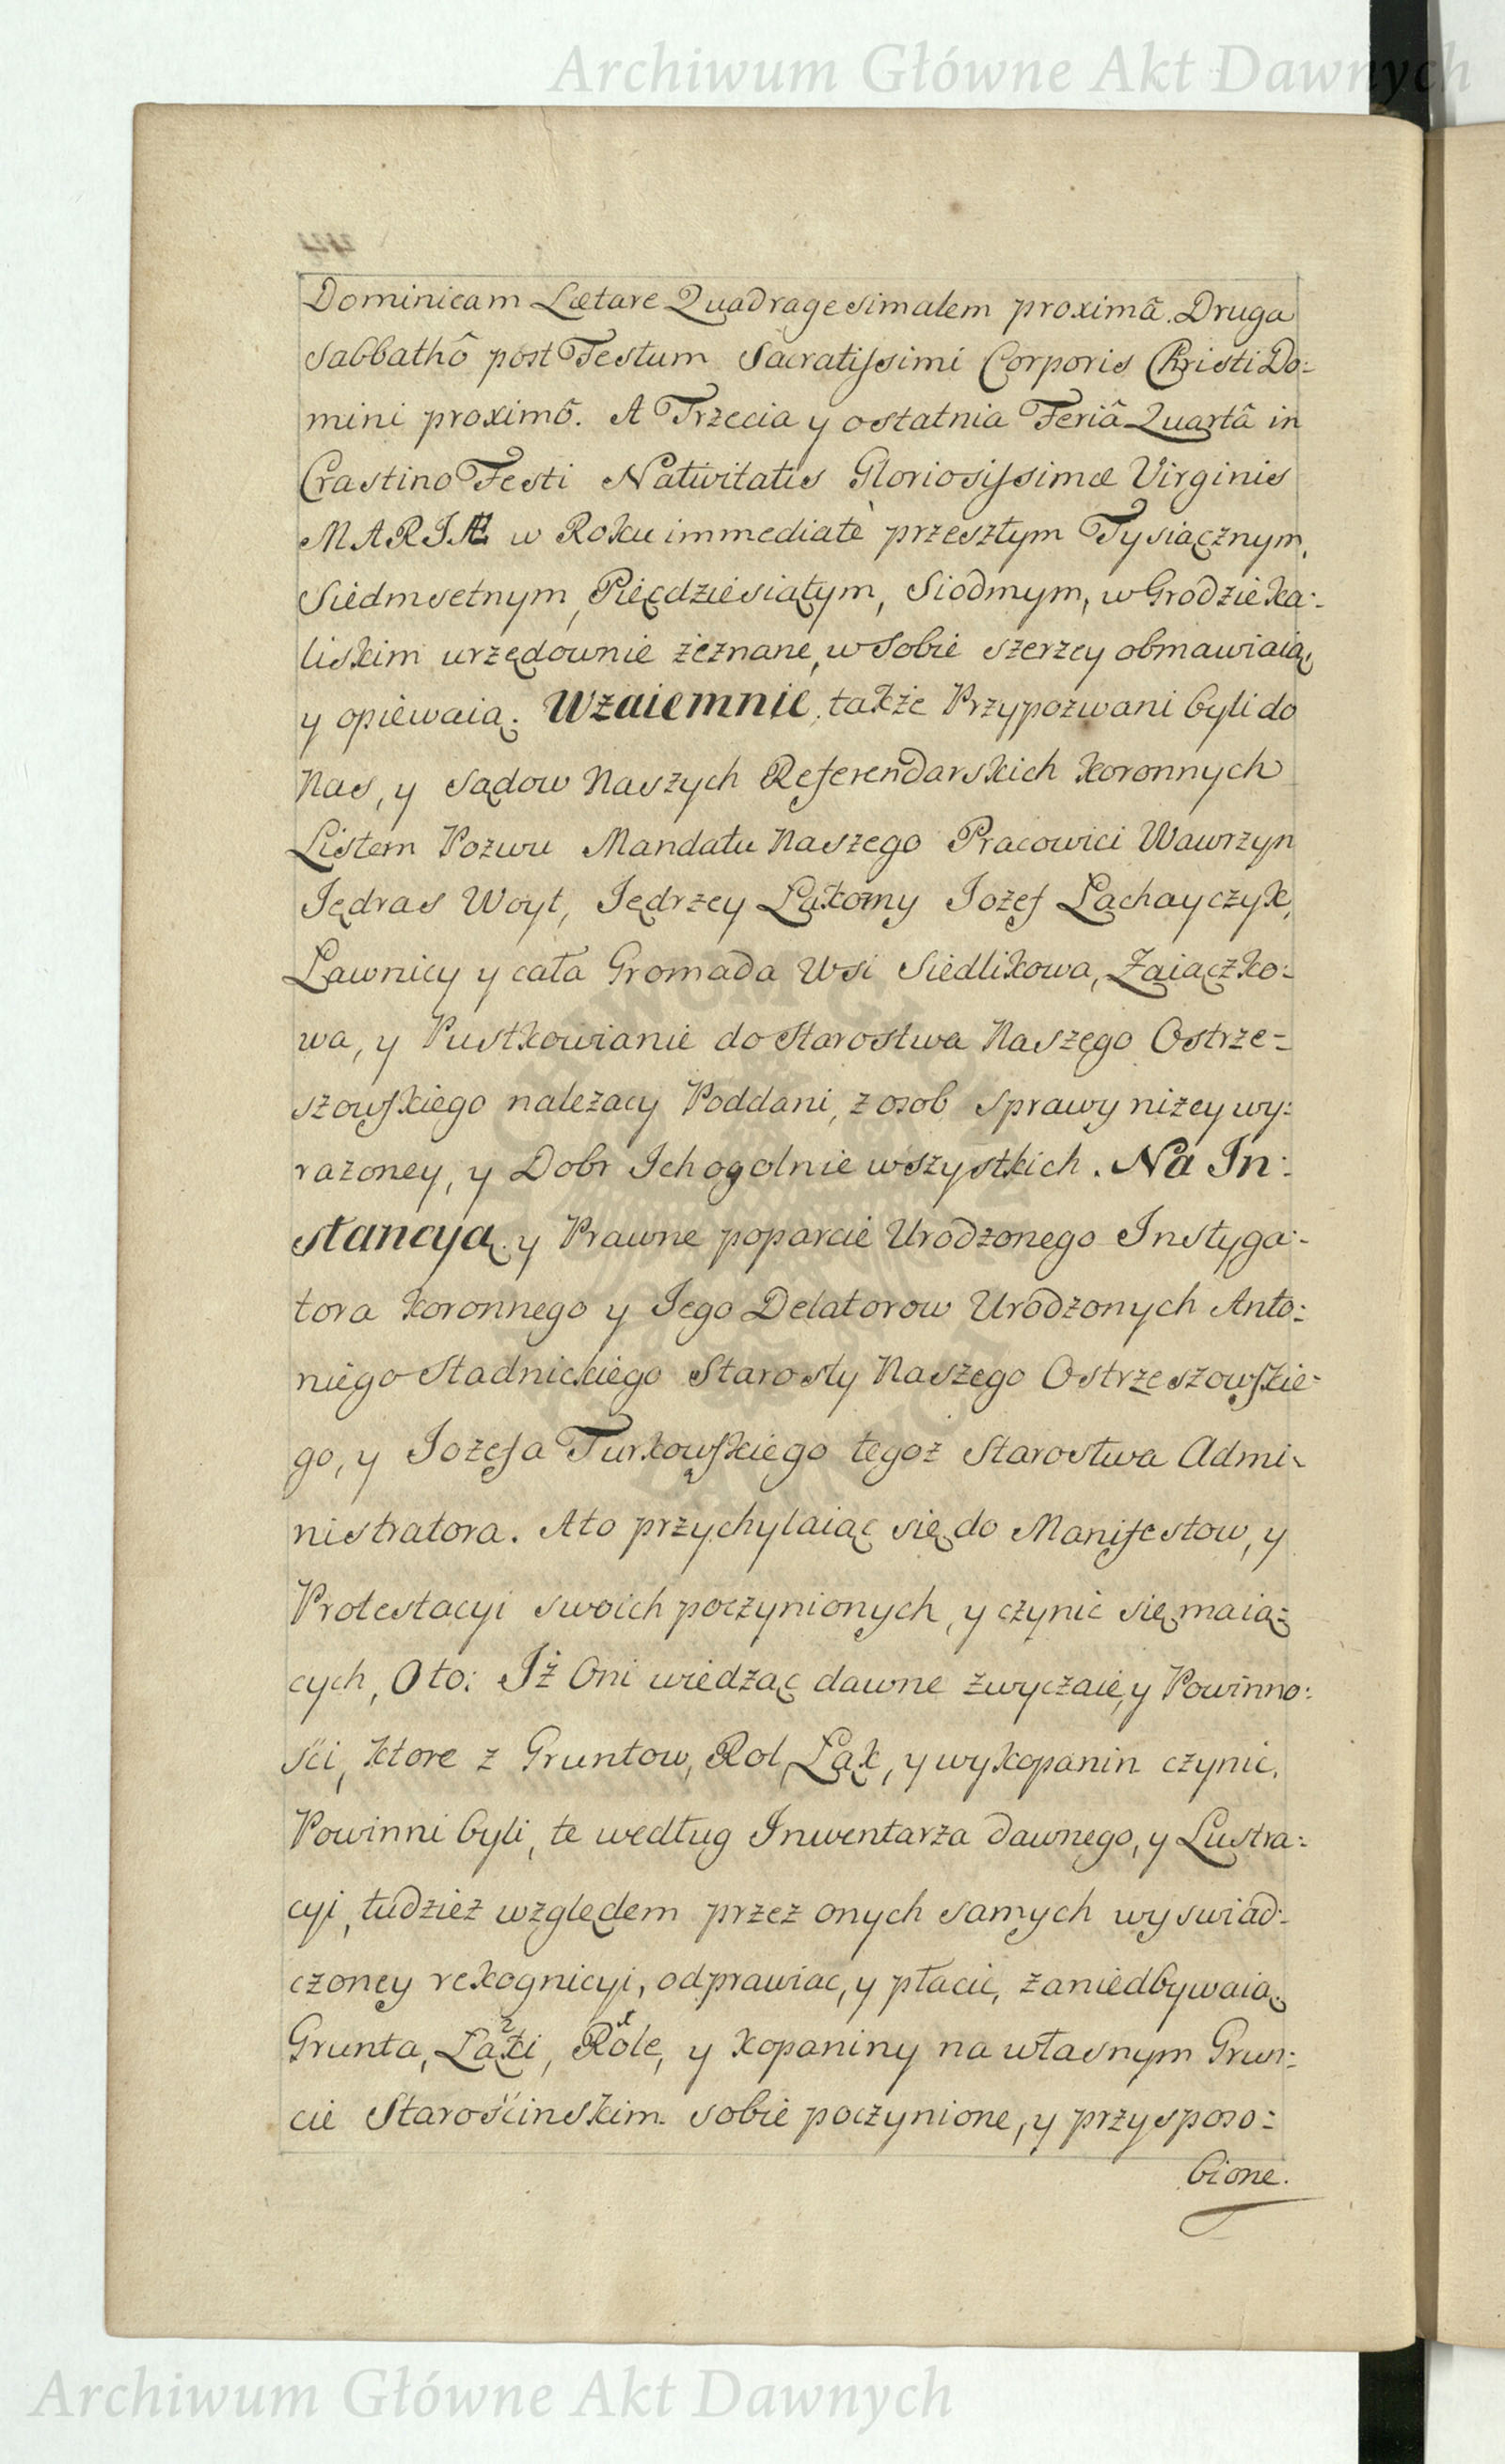 Archiwum Główne Akt Dawnych
Dominicam Lætare Quadragesimalem proximâ. Druga
Sabbathô post Festum Sacratissimi Corporis Christi Do:
mini proximô. A Trzecia y ostatnia Feriâ Quartâ in
Crastino Festi Nativitatis Gloriosissimæ Virginis
MARIÆ w Roku immediatè przeszłym Tysiącznym,
Siedmsetnym, Pięćdziesiątym, Siodmym, w Grodzie Ka:
liskim urzędownie zeznane, w Sobie szerzey obmawiaią,
y opiewaią. Wzaiemnie, także Przypozwani byli do
Nas, y Sądow Naszych Referendarskich Koronnych
Listem Pozwu Mandatu Naszego Pracowici Wawrzyn
Jędras Woyt, Jędrzey Łakomy Jozef Lachayczyk,
Ławnicy y cała Gromada Wsi Siedlikowa, Zaiączko:
wa, y Pustkowianie do Starostwa Naszego Ostrze=
szowskiego należący Poddani, z osob sprawy niżey wy:
rażoney, y Dobr Ich ogolnie wszystkich. Na In:
stancyą y Prawne poparcie Urodzonego Instyga:
tora Koronnego y Jego Delatorow Urodzonych Anto:
niego Stadnickiego Starosty Naszego Ostrzeszowskie:
go, y Jozefa Turkowskiego tegoż Starostwa Admi:
nistratora. A to przychylaiąc się do Manifestow, y
Protestacyi swoich poczynionych, y czynic się maią:
cych, Oto: Iż Oni wiedząc dawne zwyczaie, y Powinno:
ści, ktore z Gruntow, Rol, Łąk, y wykopanin czynic,
Powinni byli, te według Inwentarza dawnego, y Lustra:
cyi, tudzież względem przez onych samych wyswiad:
czoney rekognicyi, odprawiac, y płacic, zaniedbywaią
Grunta, Łąki, Role, y Kopaniny na własnym Grun:
cie Starościnskim sobie poczynione, y przysposo:
bione.
Archiwum Główne Akt Dawnych